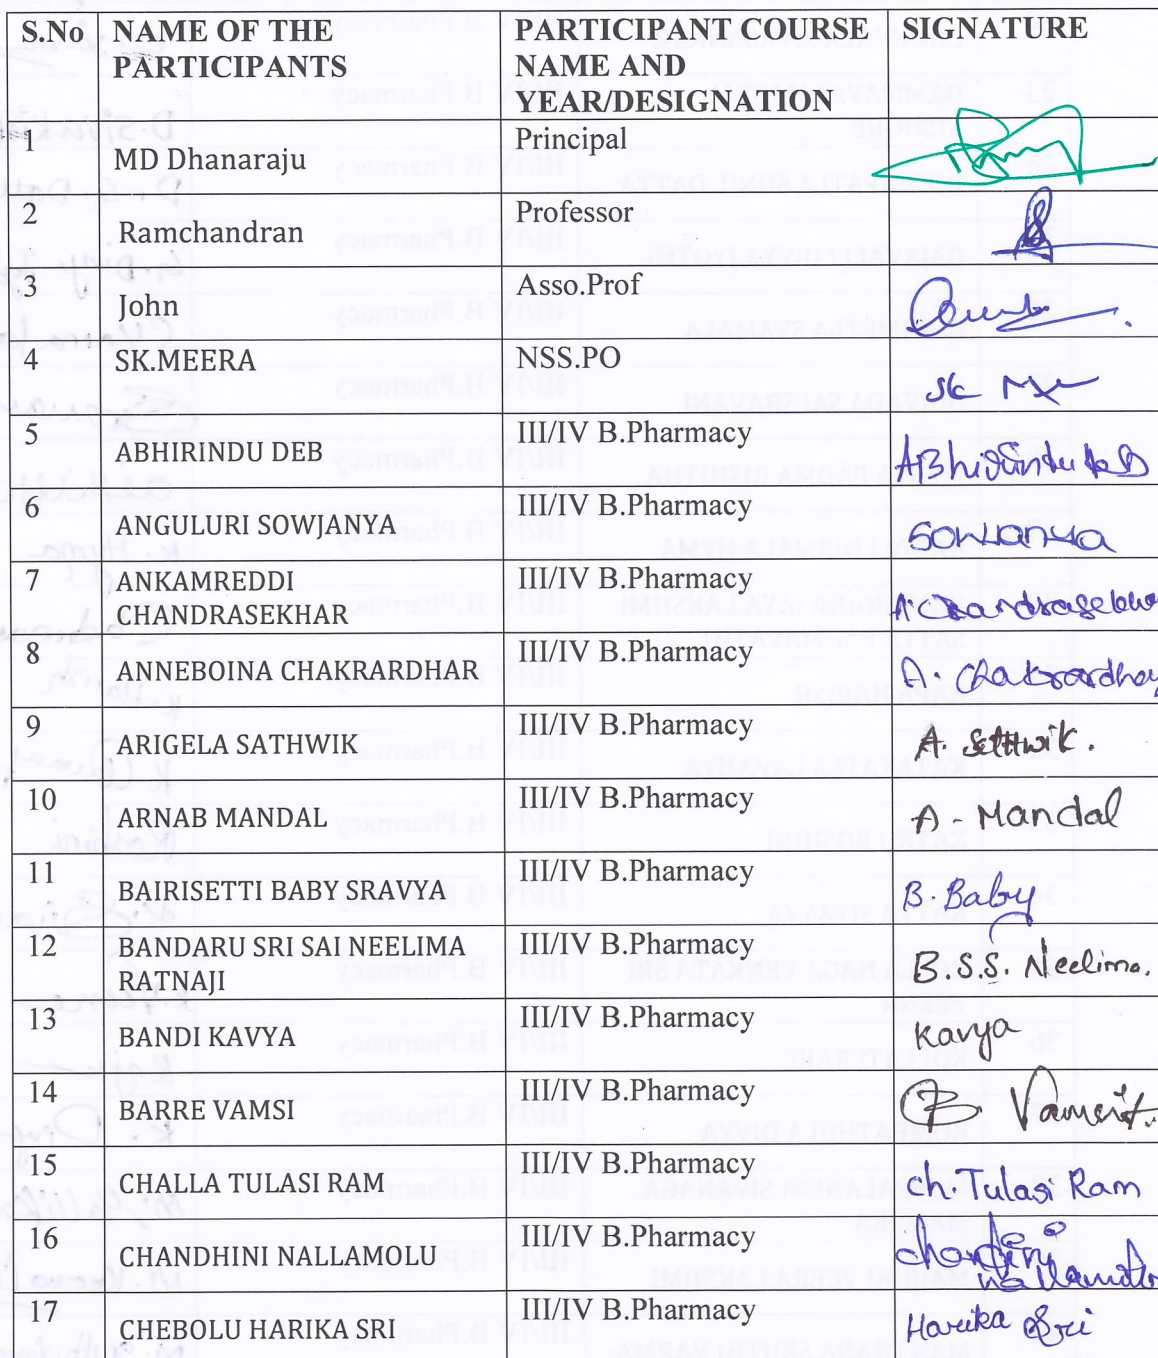 S.No NAME OF THE PARTICIPANTS PARTICIPANT COURSE NAME AND YEAR/DESIGNATION SIGNATURE
1 MD Dhanaraju Principal
2 Ramchandran Professor
3 John Asso.Prof
4 SK.MEERA NSS.PO SK
5 ABHIRINDU DEB III/IV B.Pharmacy
6 ANGULURI SOWJANYA III/IV B.Pharmacy Sowjanya
7 ANKAMREDDI CHANDRASEKHAR III/IV B.Pharmacy A. Chandrasekha
8 ANNEBOINA CHAKRARDHAR III/IV B.Pharmacy A. Chakrardhay
9 ARIGELA SATHWIK III/IV B.Pharmacy A. Satthwik.
10 ARNAB MANDAL III/IV B.Pharmacy A - Mandal
11 BAIRISETTI BABY SRAVYA III/IV B.Pharmacy B. Baby
12 BANDARU SRI SAI NEELIMA RATNAJI III/IV B.Pharmacy B.S.S. Neelima.
13 BANDI KAVYA III/IV B.Pharmacy Kavya
14 BARRE VAMSI III/IV B.Pharmacy B. Vamsi
15 CHALLA TULASI RAM III/IV B.Pharmacy Ch. Tulasi Ram
16 CHANDHINI NALLAMOLU III/IV B.Pharmacy
17 CHEBOLU HARIKA SRI III/IV B.Pharmacy Harika Sri